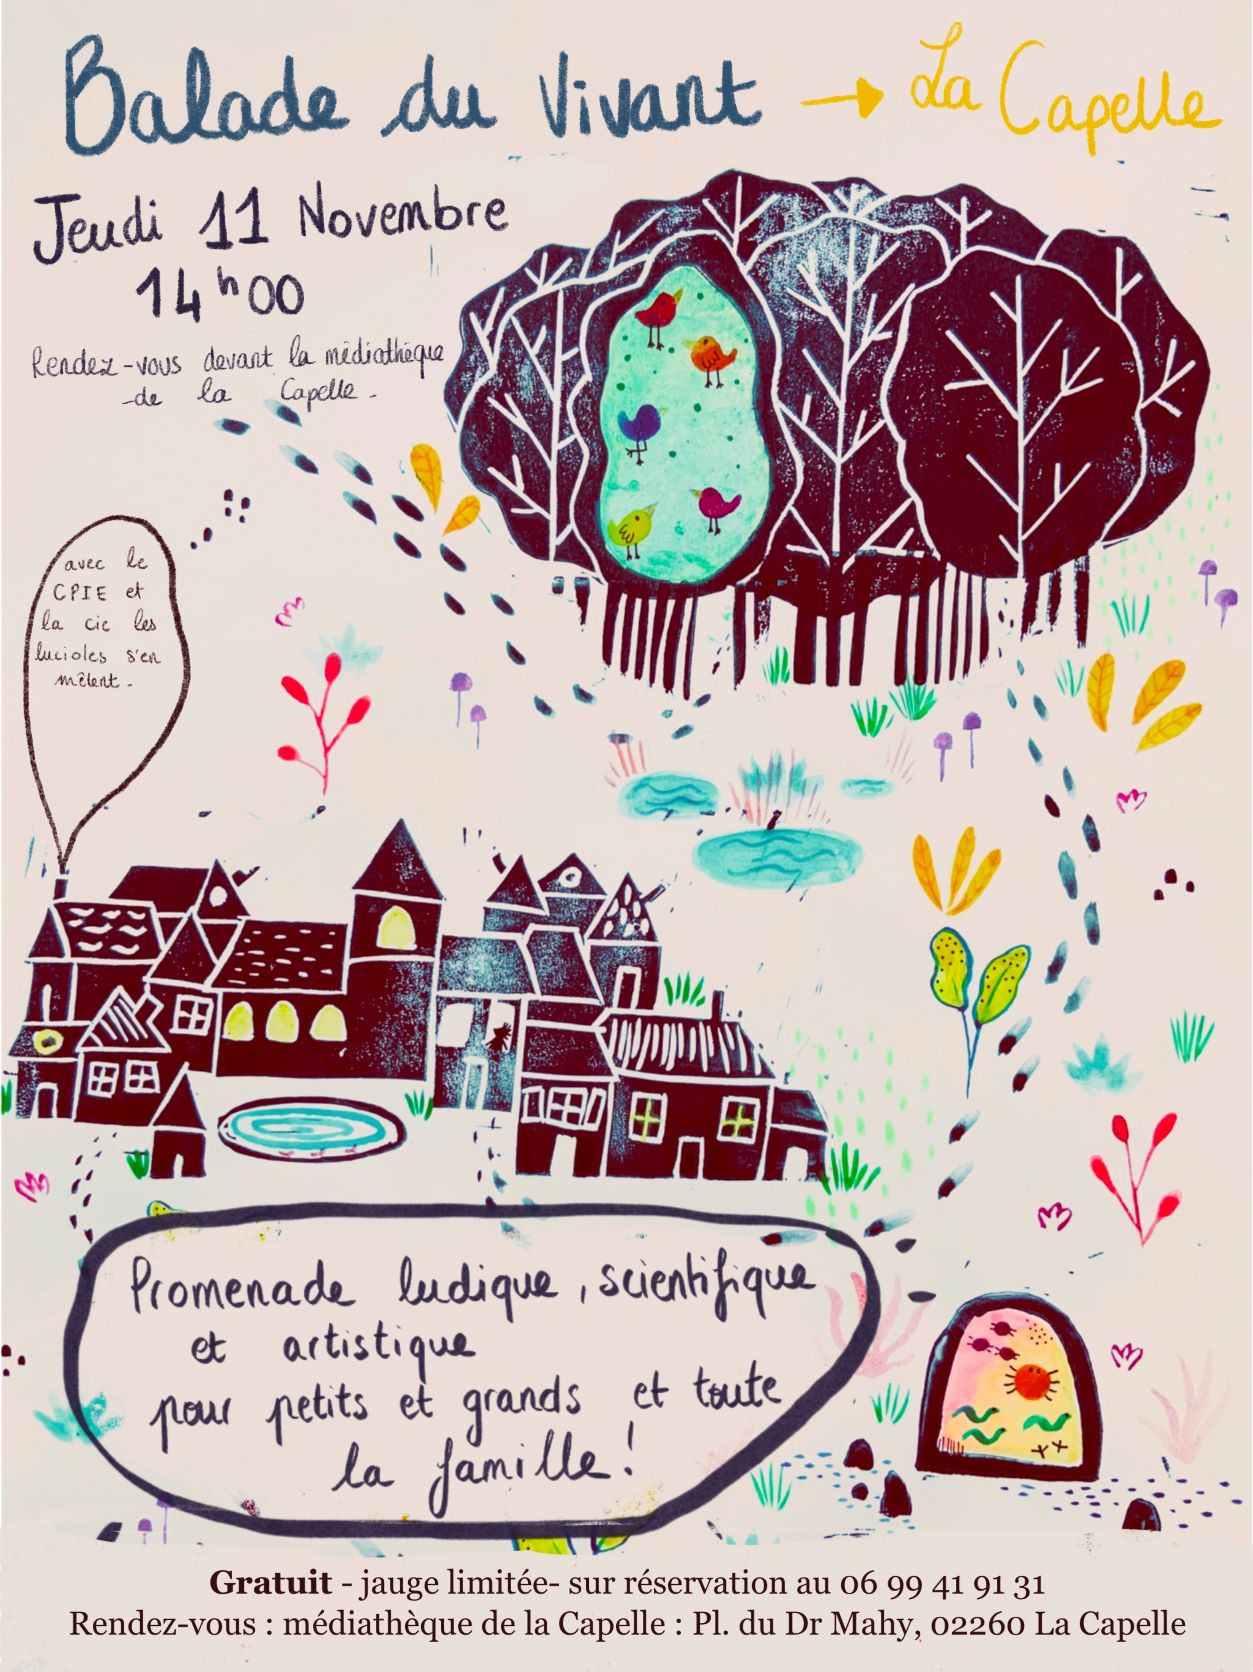 Balade du Vivant → La Capelle
Jeudi 11 Novembre
14h00
Rendez-vous devant la médiathèque
-de la Capelle-
avec le
CPIE et
la cie les
lucioles s'en
mêlent-
Promenade ludique, scientifique
et artistique
pour petits et grands et toute
la famille!
Gratuit - jauge limitée- sur réservation au 06 99 41 91 31
Rendez-vous : médiathèque de la Capelle : Pl. du Dr Mahy, 02260 La Capelle